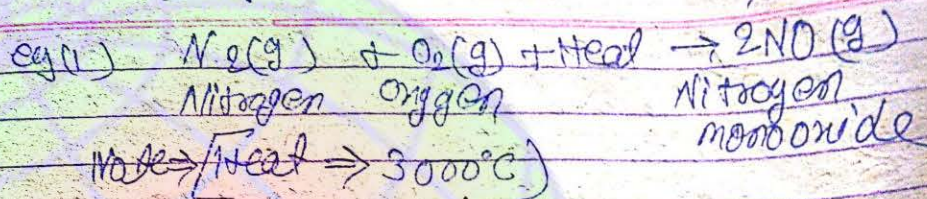 eg(1) N2(g) + O2(g) + Heat → 2NO(g)
Nitrogen Oxygen Nitrogen
monoxide
Note⇒ [Heat ⇒ 3000°C)